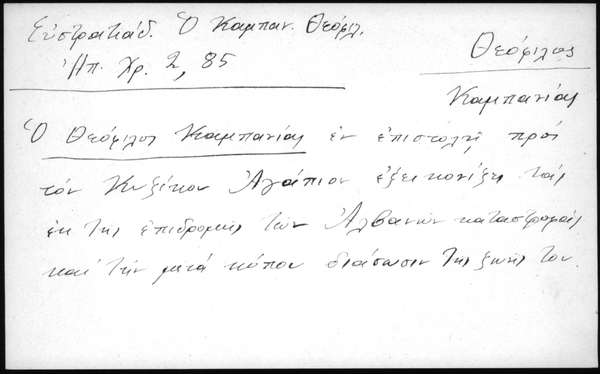 Εὐστρατιάδ. Ὁ Καμπαν. Θεόφιλ.
Ἠπ. Χρ. 2, 85
Θεόφιλος
Καμπανίας
Ὁ Θεόφιλος Καμπανίας ἐν ἐπιστολῇ πρὸς
τὸν Κυζίκου Ἀγάπιον ἐξεικονίζει τὰς
ἐκ τῆς ἐπιδρομῆς τῶν Ἀλβανῶν καταστροφὰς
καὶ τὴν μετὰ κόπου διάσωσιν τῆς ζωῆς του.